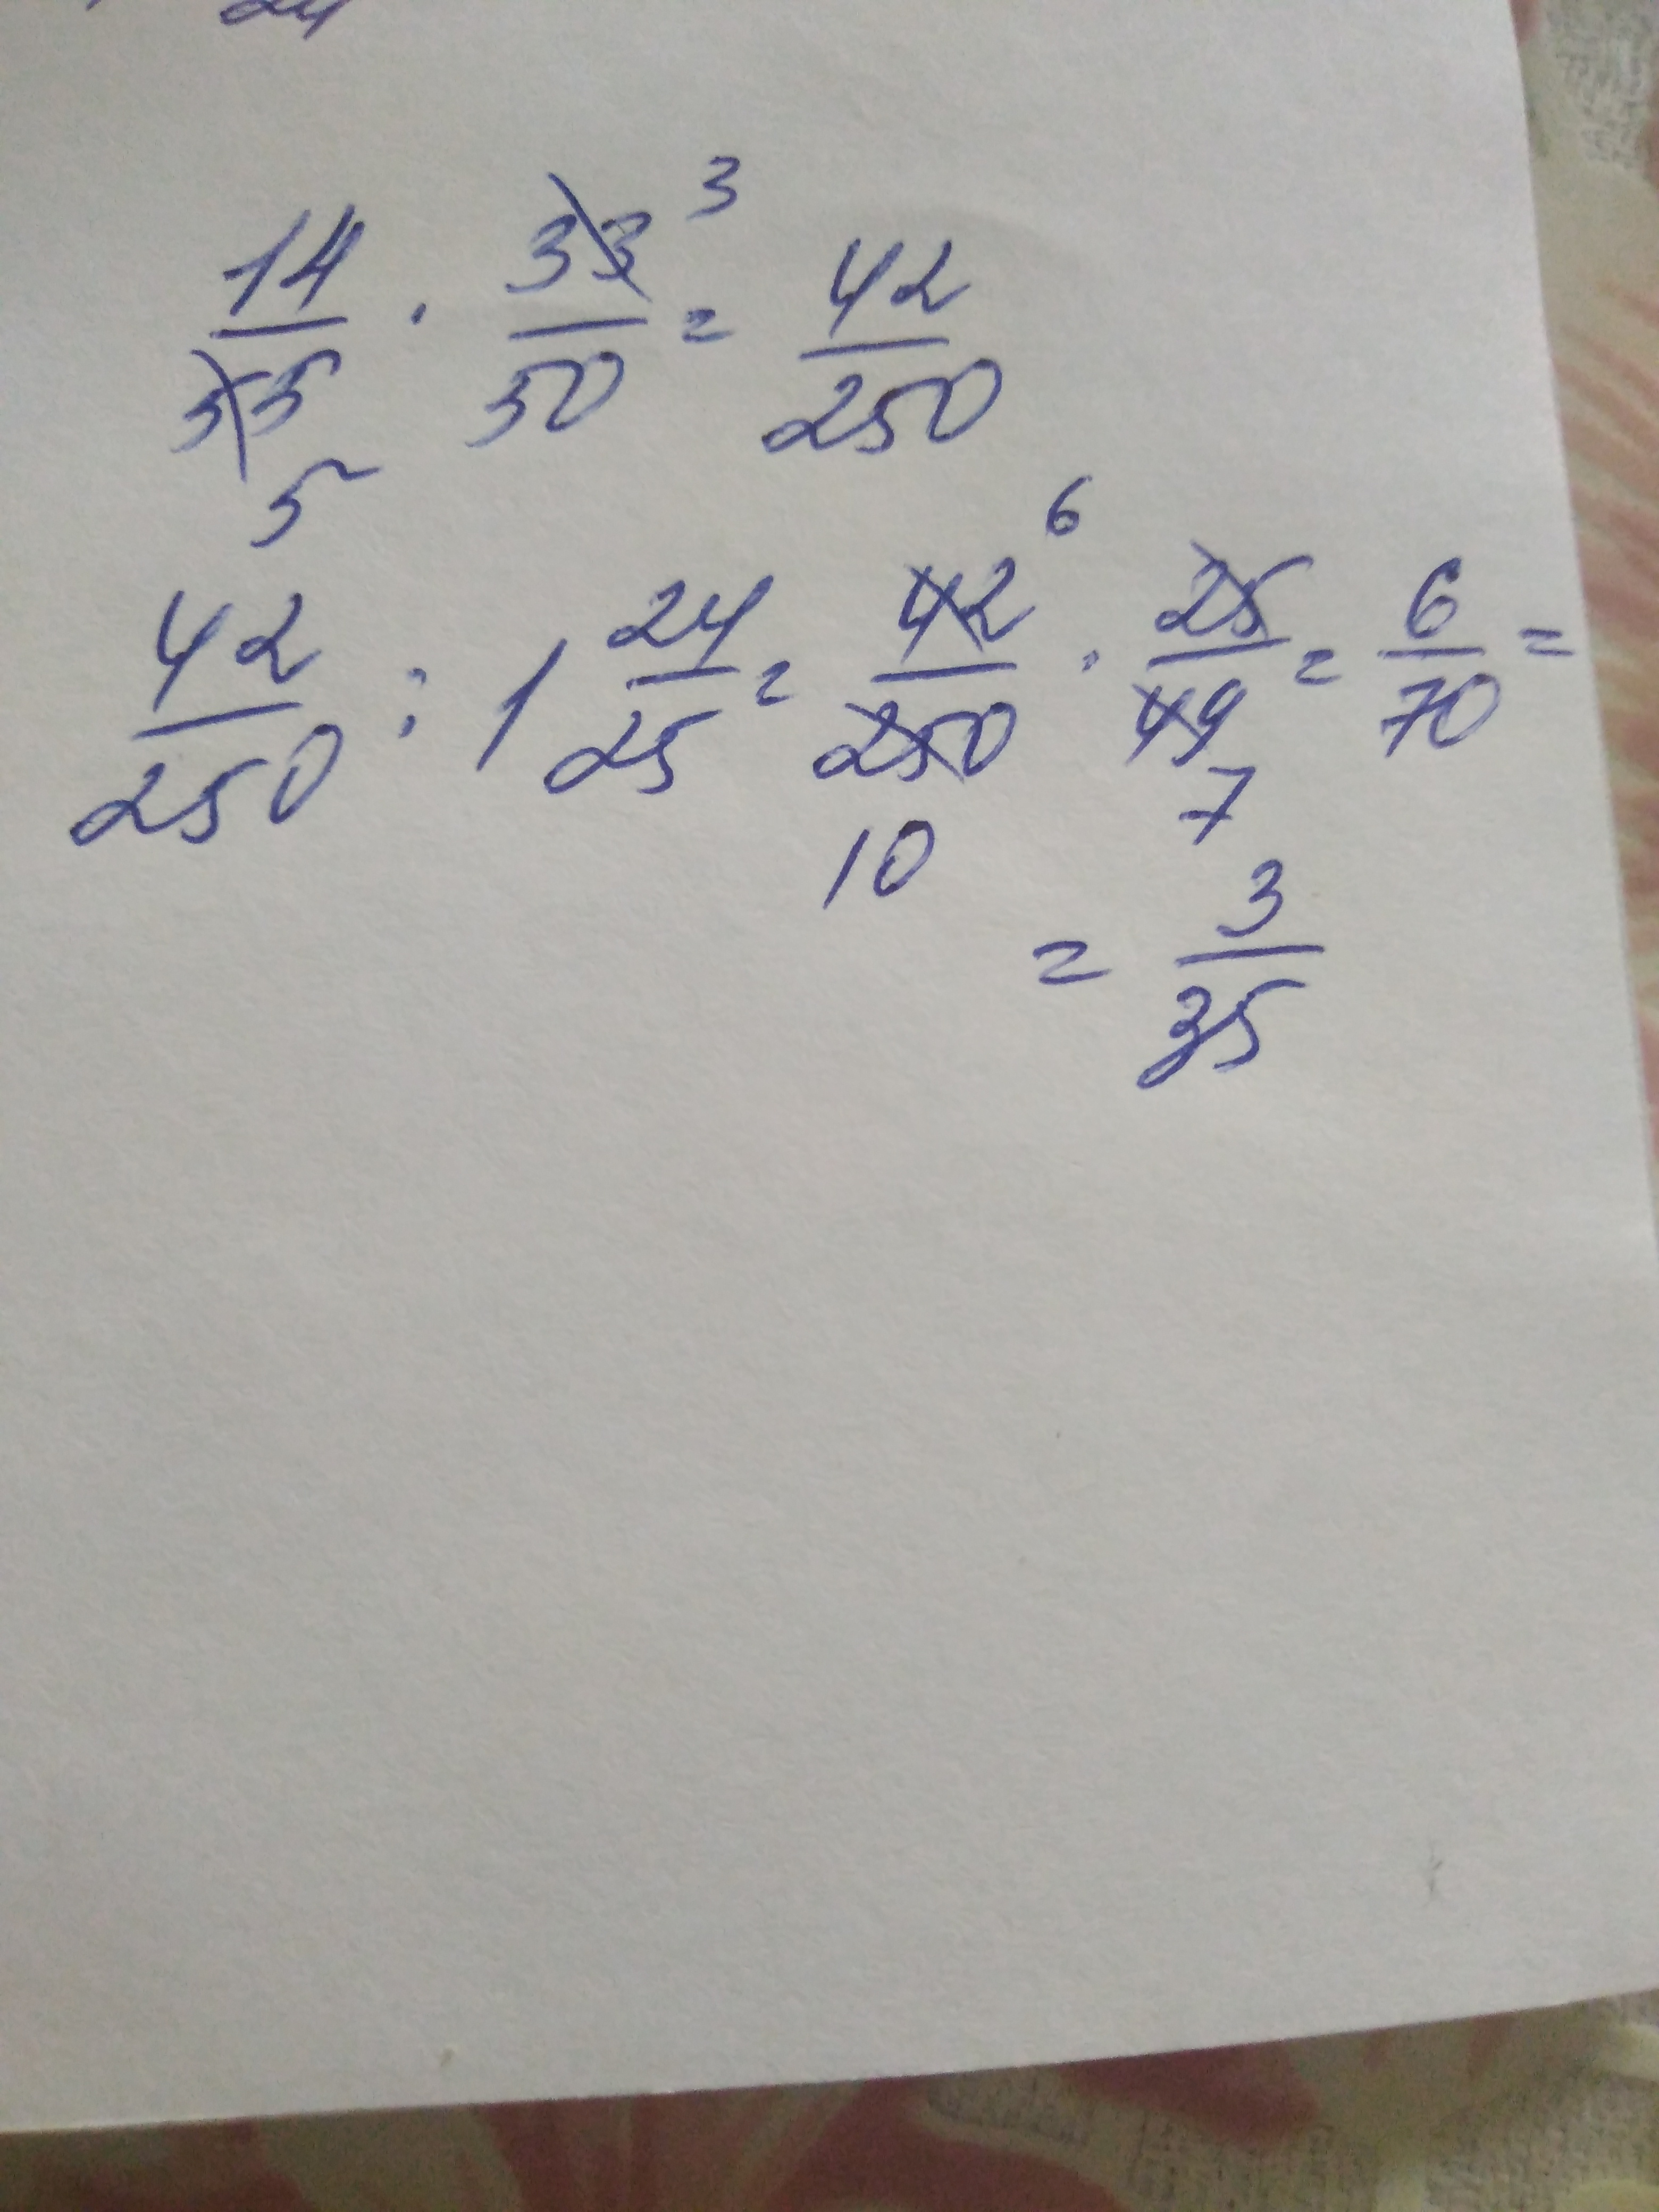 24
14/55 · 33/50 = 42/250
3
5
42/250 : 1 24/25 = 42/250 · 25/49 = 6/70 =
6
10 7
= 3/35